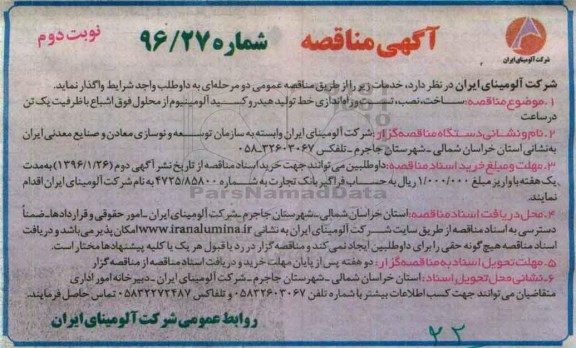 نوبت دوم
آگهی مناقصه شماره ۹۶/۲۷
شرکت آلومینای ایران
شرکت آلومینای ایران در نظر دارد، خدمات زیر را از طریق مناقصه عمومی دو مرحله‌ای به داوطلب واجد شرایط واگذار نماید.
۱.موضوع مناقصه: ساخت، نصب، تست و راه‌اندازی خط تولید هیدروکسید آلومینیوم از محلول فوق اشباع با ظرفیت یک تن
در ساعت
۲.نام و نشانی دستگاه مناقصه‌گزار: شرکت آلومینای ایران وابسته به سازمان توسعه و نوسازی معادن و صنایع معدنی ایران
به نشانی استان خراسان شمالی ـ شهرستان جاجرم ـ تلفکس ۳۲۶۰۳۰۶۷-۰۵۸
۳.مهلت و مبلغ خرید اسناد مناقصه: داوطلبین می‌توانند جهت خرید اسناد مناقصه از تاریخ نشر آگهی دوم (۱۳۹۶/۱/۲۶) به مدت
یک هفته با واریز مبلغ ۱/۰۰۰/۰۰۰ ریال به حساب فراگیر بانک تجارت به شماره ۴۷۳۵/۸۵۸۰۰ به نام شرکت آلومینای ایران اقدام
نمایند.
ParsNamadData
۴.محل دریافت اسناد مناقصه: استان خراسان شمالی ـ شهرستان جاجرم ـ شرکت آلومینای ایران ـ امور حقوقی و قراردادها. ضمناً
دسترسی به اسناد مناقصه از طریق سایت شرکت آلومینای ایران به نشانی www.iranalumina.ir امکان پذیر می‌باشد و دریافت
اسناد مناقصه هیچ گونه حقی را برای داوطلبین ایجاد نمی‌کند و مناقصه گزار در رد یا قبول هر یک یا کلیه پیشنهادها مختار است.
۵.مهلت تحویل اسناد به مناقصه گزار: دو هفته پس از پایان مهلت خرید و دریافت اسناد مناقصه از مناقصه گزار
۶.نشانی محل تحویل اسناد: استان خراسان شمالی ـ شهرستان جاجرم ـ شرکت آلومینای ایران ـ دبیرخانه امور اداری
متقاضیان می‌توانند جهت کسب اطلاعات بیشتر با شماره تلفن ۰۵۸۳۲۶۰۳۰۶۷ و تلفاکس ۰۵۸۳۲۲۷۲۴۸۷ تماس حاصل فرمایند.
روابط عمومی شرکت آلومینای ایران
۲۲